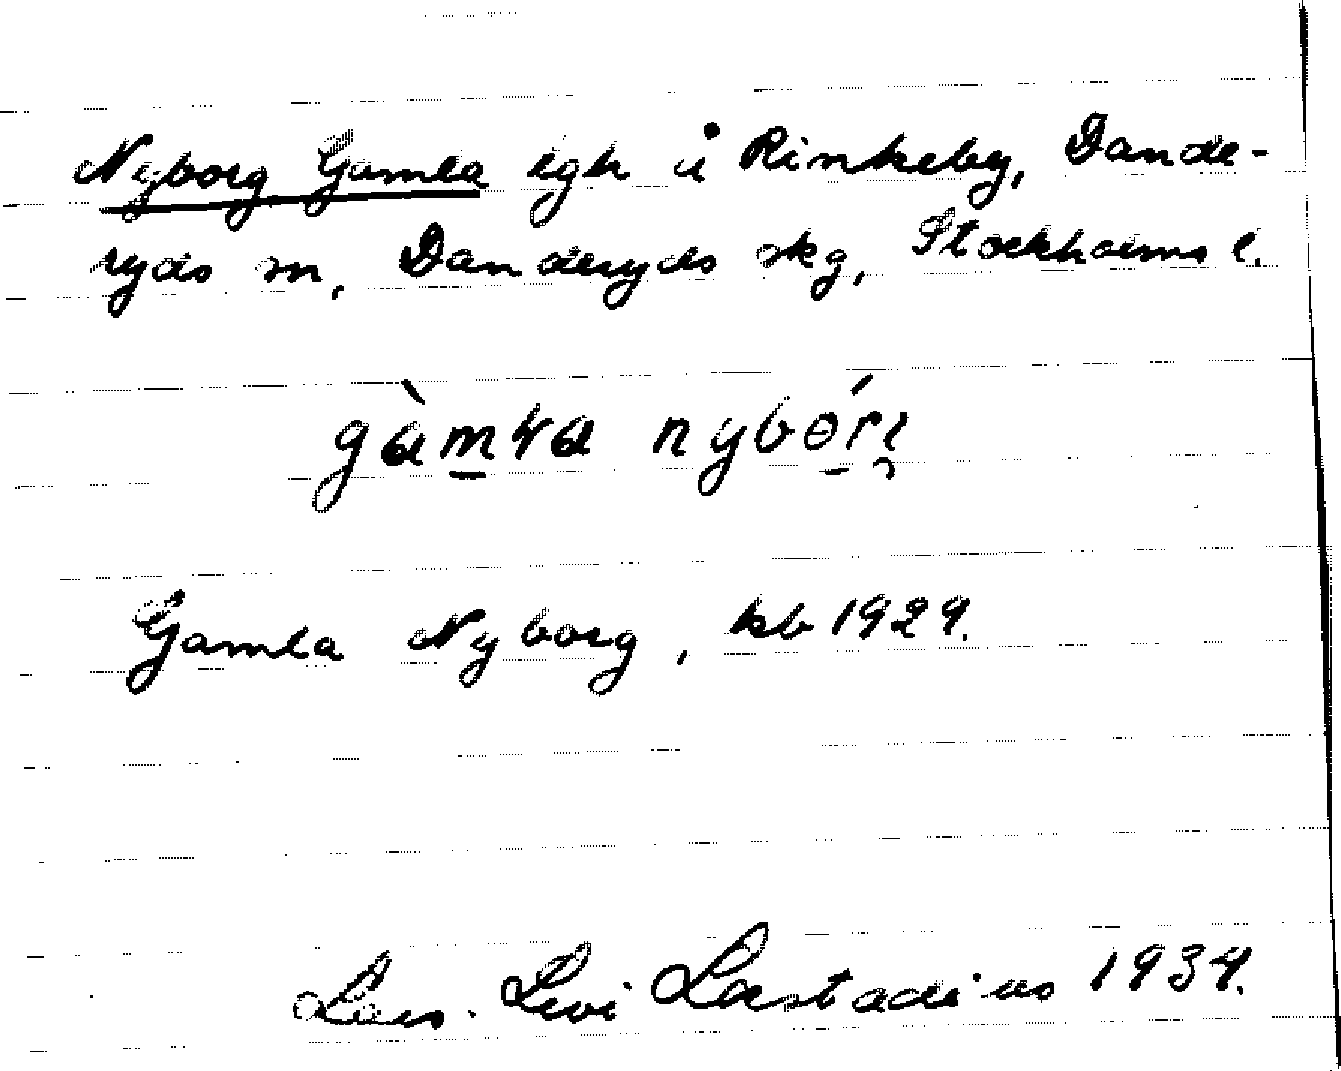 Nyborg, Gamla lgh å Rinkeby, Dande-
ryds sn, Danderyds skg, Stockholms l.
gàmła nybórį
Gamla Nyborg, kb 1929.
Lars. Levi Læstadius 1934.